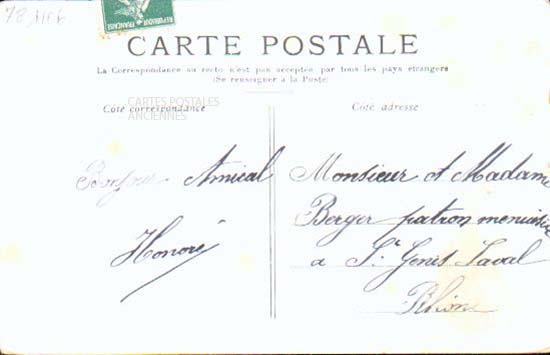 CARTE POSTALE
La Correspondance au recto n'est pas acceptée par tous les pays étrangers
(Se renseigner à la Poste)
CARTES POSTALES
ANCIENNES
Côté correspondance
Côté adresse
Bonjour Amical
Honoré
Monsieur et Madame
Berger patron menuisier
a St Genis Laval
Rhône